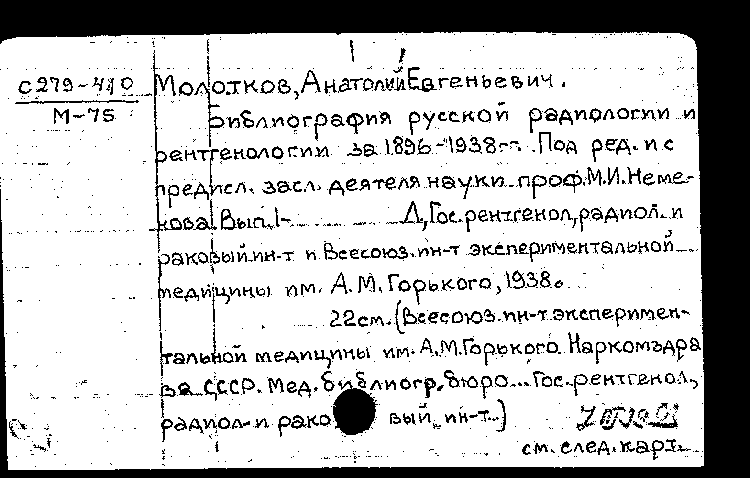 С279-410
М-75
Молотков, Анатолий Евгеньевич.
Библиография русской радиологии и
рентгенологии за 1896-1938гг. Под ред. и с
предисл. засл. деятеля науки проф. М.И. Неме-
нова. Вып. 1- Л, Гос. рентгенол, радиол. и
раковый ин-т и Всесоюз. ин-т экспериментальной
медицины им. А.М. Горького, 1938.
22см. (Всесоюз. ин-т эксперимен-
тальной медицины им. А.М. Горького. Наркомздра
ва СССР. Мед. библиогр. бюро... Гос. рентгенол,
радиол. и раковый ин-т.)
см. след. карт.